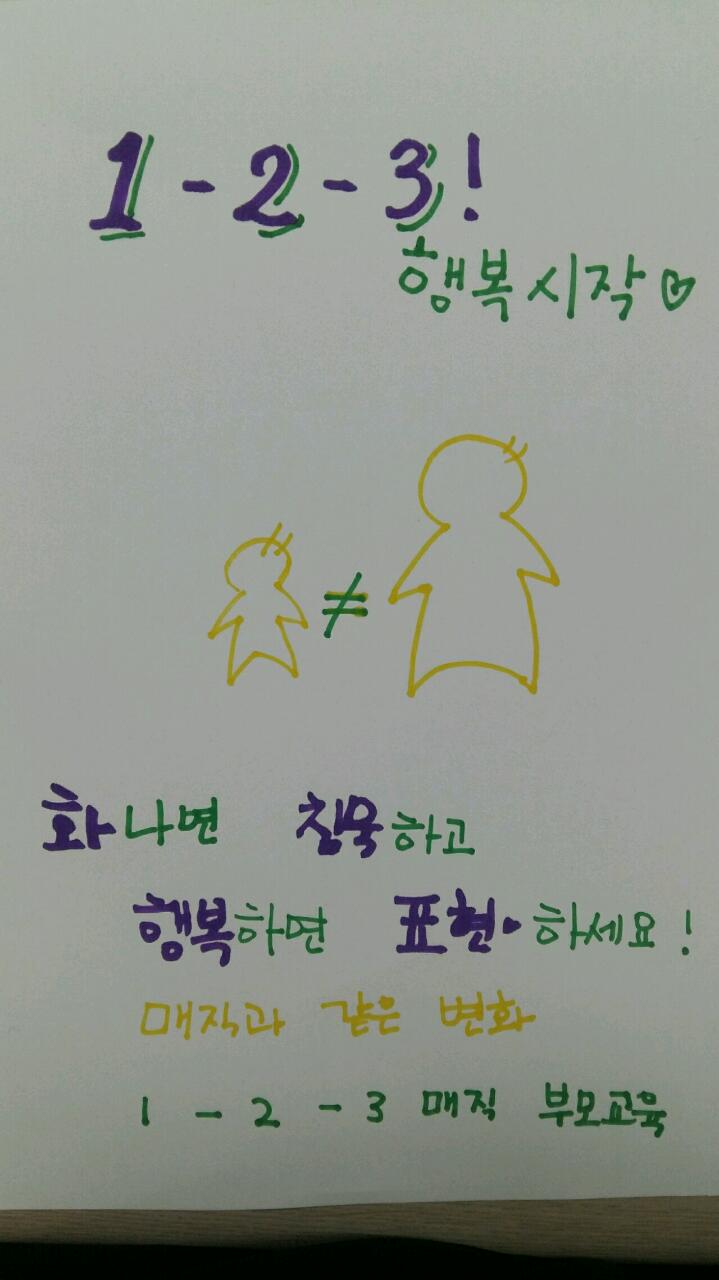 1 - 2 - 3 !
행복 시작♡
≠
화나면 침묵하고
행복하면 표현하세요!
매직과 같은 변화
1 - 2 - 3 매직 부모교육